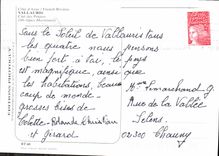 Côte d'Azur - French Riviera
VALLAURIS
Cité des Potiers
Sous le Soleil de Vallauris tous
les quatre nous pensons
bien fort à vous, le pays
est magnifique, ainsi que
les habitations, beaucoup
coup de monde
grosses bises de
Colette - Christian
et Gérard
Rue de la Vallée
02300 Chauny
EDITIONS PHOTOGUY